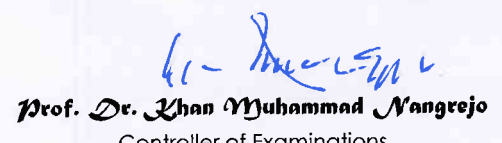 Prof. Dr. Khan Muhammad Nangrejo
Controller of Examinations